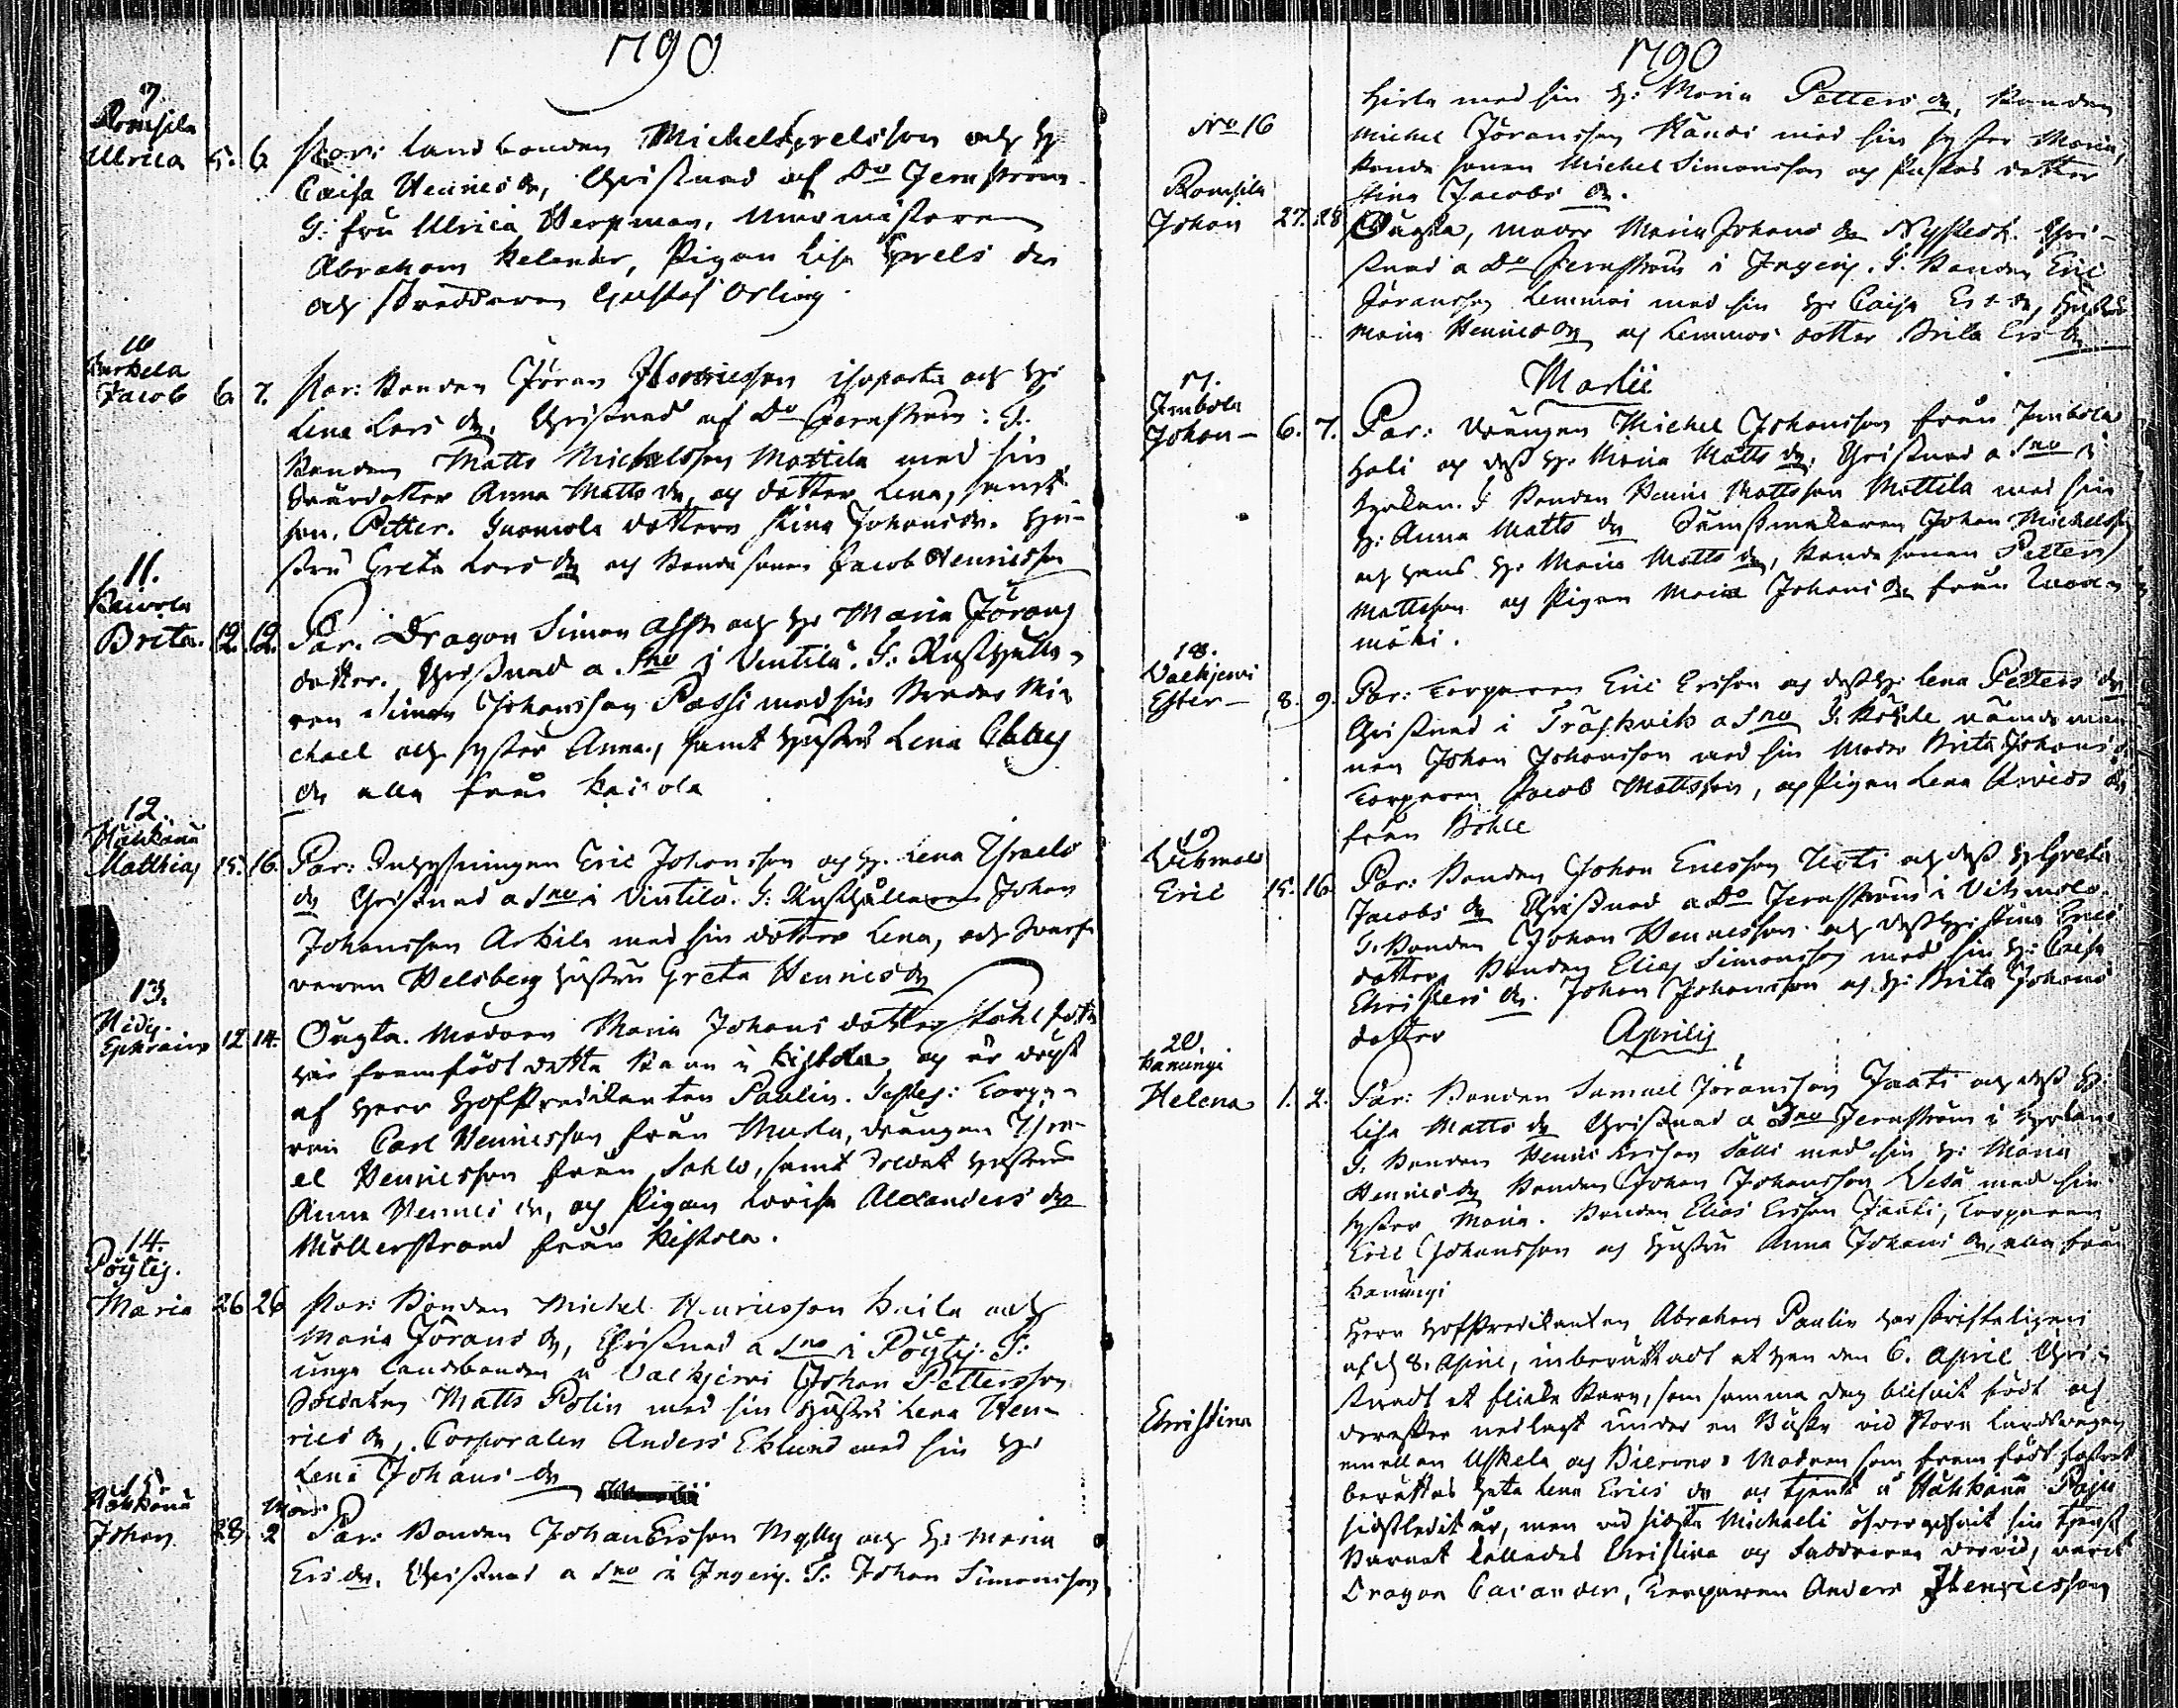 1790
9.
Romsila
Ulrica 5. 6. Par: Landbonden Michel Israelsson och H:
Caisa Henrics dr, Christnad af Do Jernström
G: fru Ulrica Bergman,
Abraham Helander, Pigan Lisa Israels dr
och Skreddaren Gustaf Orling
10
Jacob 6. 7. Par: Bonden Jöran Henricsson och H:
Lena Lars dr, Christnad af Do Jernström: G:
Bonden Matts Michelsson Mattila med sin
Svärdotter Anna Matts dr, och dotter Lena, samt
son, Petter. dottern Stina Johans dr. Hu-
stru Greta Lars dr och Bonde sonen Jacob Henricsson
11.
Kaivola
Brita. 12. 12. Par. Dragon Simon och H: Maria Jörans
dotter. Christnad a Sno i Ventilä. G: Rusthålla-
ren Simon Johansson Passi med sin Broder Mi-
chael och syster Anna, samt Hustru Lena
dr alla från Kaivola
12.
Haukanä
Matthias 15. 16. Par: Inhysningen Eric Johansson och H. Lena Israels
dr Christnad a Sno i Vintilä. G: Rusthållaren Johan
Johansson Arkila med sin dotter Lena, och
Velsberg hustru Greta Henrics dr
13.
Ephraim 12 14. Oägta. Modren Maria Johans dotter
här framfödt detta Barn i Kistola, och är döpt
af Herr Hofpredikanten Paulin. Torpa-
ren Carl Henricsson från Murla, drängen Isra-
el Henricsson från Sahlo, samt Soldat hustru
Anna Henrics dr, och Pigan Lovisa Alexanders dr
Möllerstrand från Kistola.
14.
Pöytij.
Maria 26 26 Par: Bonden Michel Henricsson Keila och
Maria Jörans dr, Christnad a Sno i Pöytij. G:
unga landbonden i Valkjerwi Johan Pettersson
Soldaten Matts Polin med sin Hustru Lena Hen-
rics dr, Corporalen Anders Eklund med sin H:
Lena Johans dr
15.
Johan 28. Mars 2 Par: Bonden Johan Ersson Mylly och H: Maria
Ers dr, Christnad a Sno i Ingerij. G: Johan Simonsson
1790
Hirla med sin H: Maria Petters dr, Bonden
No 16 Michel Jöransson Händi med sin syster Maria,
Bonde sonen Michel Simonsson och dotter
Stina Jacobs dr.
Romsila
Johan 27. 28 Oägta, moder Maria Johans dr Nystedt. Chri-
stnad a Do Jernström i Ingerij. G. Bonden Eric
Jöransson Lemmoi med sin H: Caisa Ers dr, Hustru
Maria Henrics dr och Lemmoi dotter Brita Ers dr
Martii
17.
Imbola
Johan — 6. 7. Par: Drängen Michel Johansson från Imbola
Hali och dess H: Maria Matts dr, Christnad a Sno i
Kyrkan. G Bonden Henric Mattsson Mattila med sin
H: Anna Matts dr Johan Michelsson
och hans H: Maria Matts dr, Bonde sonen Petter
Mattsson och Pigan Maria Johans dr från
mäki.
18.
Valkjerwi
Ester — 8. 9. Par: Torparen Eric Ersson och dess H: Lena Petters dr
Christnad i Träskvik a Sno G. Böhle nämdeman-
nen Johan Johansson med sin Moder Brita Johans dr
Torparen Jacob Mattsson, och Pigan Lena Henrics dr
från Böhle
19
Vihmalo
Eric 15. 16 Par: Bonden Johan Ericsson Uoti och dess H Greta
Jacobs dr Christnad a Do Jernström i Vihmalo.
G. Bonden Johan Henricsson och dess H: Stina Erics
dotter, Bonden Elias Simonsson med sin H: Caisa
Christers dr. Johan Johansson och H: Brita Johans
dotter
Aprilis
20
Kanungi
Helena 1. 2. Par: Bonden Samuel Jöransson Jaati och dess H:
Lisa Matts dr Christnad a Dno Jernström i Kyrkan
G. Bonden Henric Ersson Sälli med sin H: Maria
Henrics dr Bonden Johan Johansson Vesa med sin
syster Maria. Bonden Elias Ersson Jaati, Torparen
Eric Johansson och Hustru Anna Johans dr, alla från
Kanungi
Herr Hofpredikanten Abraham Paulin har skrifteligen
af d 8. April, inberättadt at han den 6. April Chri-
stnadt et flicke Barn, som samma dag blifvit född och
Christina derefter nedlagt under en Buske vid stora landsvägen
emellan Uskela och Bierono. Modren som framfödt
berättas heta Lena Erics dr och tjent i Haukanä Paju
sidstledit år, men vid sidsta Michaeli öfvergifvit sin tjenst
Barnet kallades Christina och Faddrarne dervid, varit
Dragon Cajander, Torparen Anders Henricsson